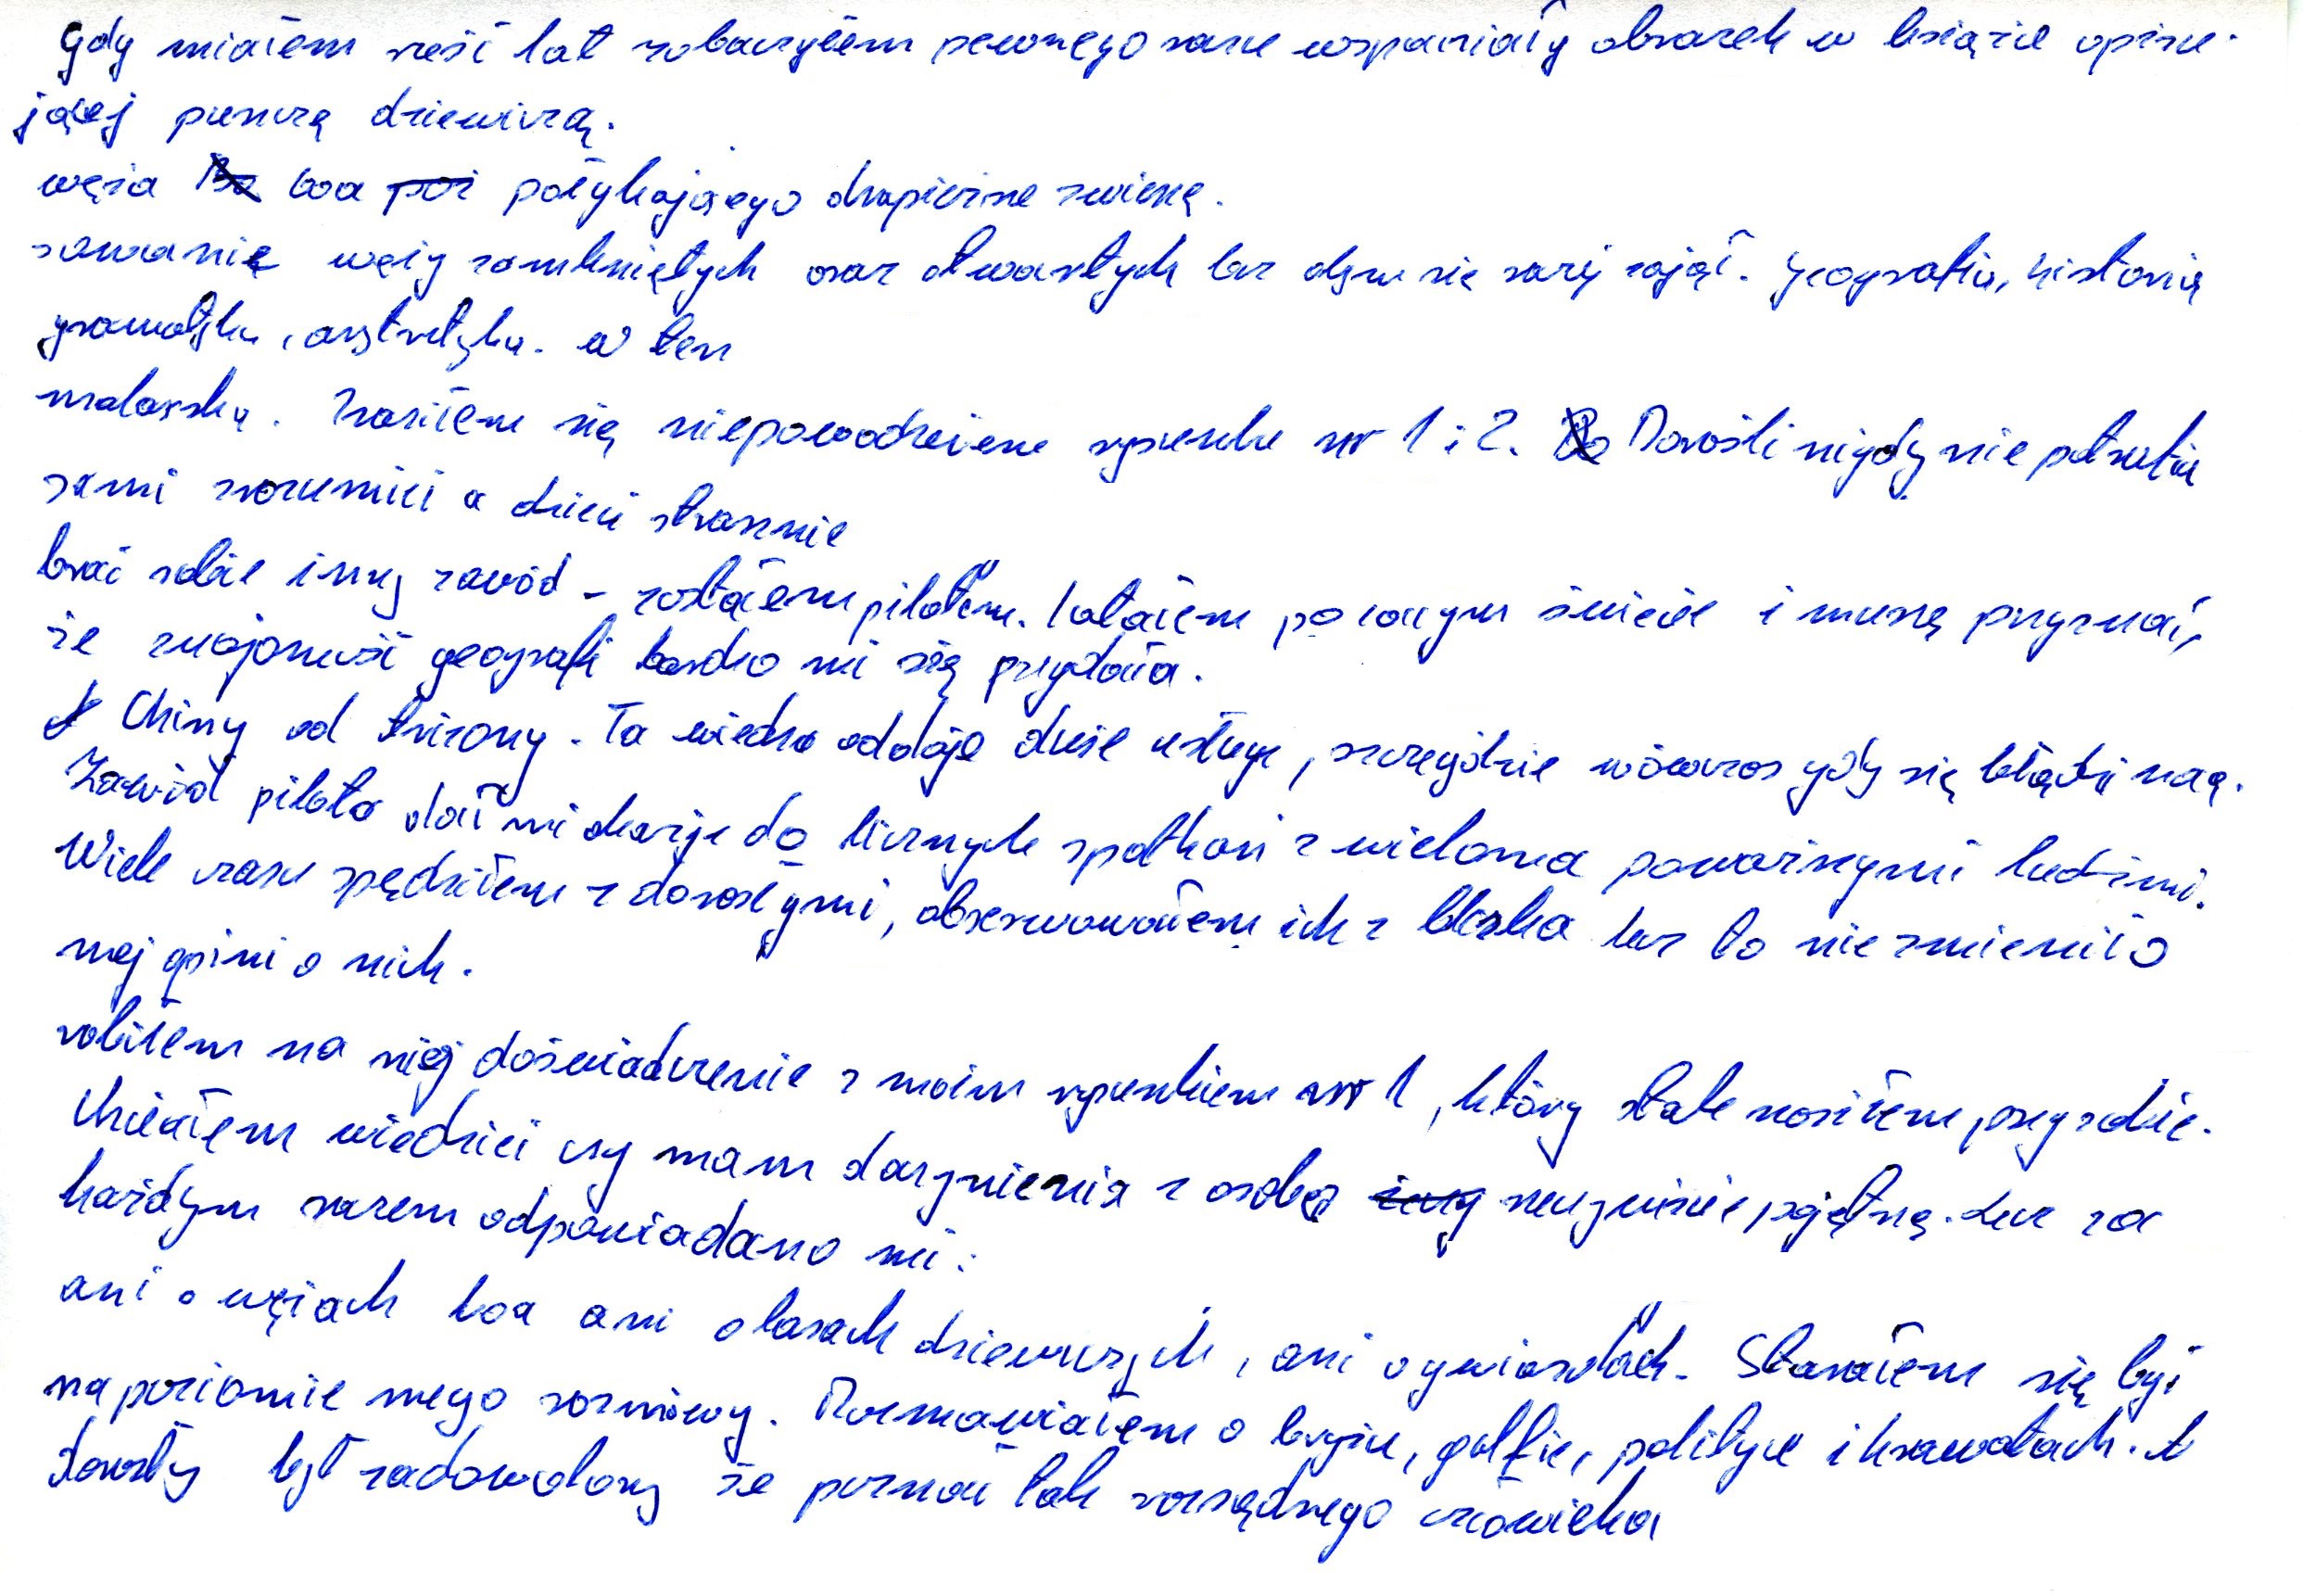 Gdy miałem sześć lat zobaczyłem pewnego razu wspaniały obrazek w książce opisu-
jącej puszczę dziewiczą.
węża boa połykającego drapieżne zwierzę.
sowanie węży zamkniętych oraz otwartych lecz abym się raczej zajął. geografią, historią
gramatyką, arytmetyką. w ten
malarską. Zraziłem się niepowodzeniem rysunku nr 1 i 2. Dorośli nigdy nie potrafią
sami zrozumieć a dzieci strasznie
brać sobie inny zawód - zostałem pilotem. Latałem po całym świecie i muszę przyznać,
że znajomość geografi bardzo mi się przydała.
Chiny od Arizony. Ta wiedza oddaje duże usługi, szczególnie wówczas gdy się błądzi nocą.
Zawód pilota dał mi okazję do licznych spotkań z wieloma poważnymi ludźmi.
Wiele czasu spędziłem z dorosłymi, obserwowałem ich z bliska lecz to nie zmieniło
mej opini o nich.
robiłem na niej doświadczenie z moim rysunkiem nr 1, który stale nosiłem przy sobie.
Chciałem wiedzieć czy mam do czynienia z osobą rzeczywiście pojętną. Lecz za
każdym razem odpowiadano mi:
ani o wężach boa ani o lasach dziewiczych, ani o gwiazdach. Starałem się być
na poziomie mego rozmówcy. Rozmawiałem o brydżu, golfie, polityce i krawatach. A
dorosły był zadowolony że poznał tak rozsądnego człowieka